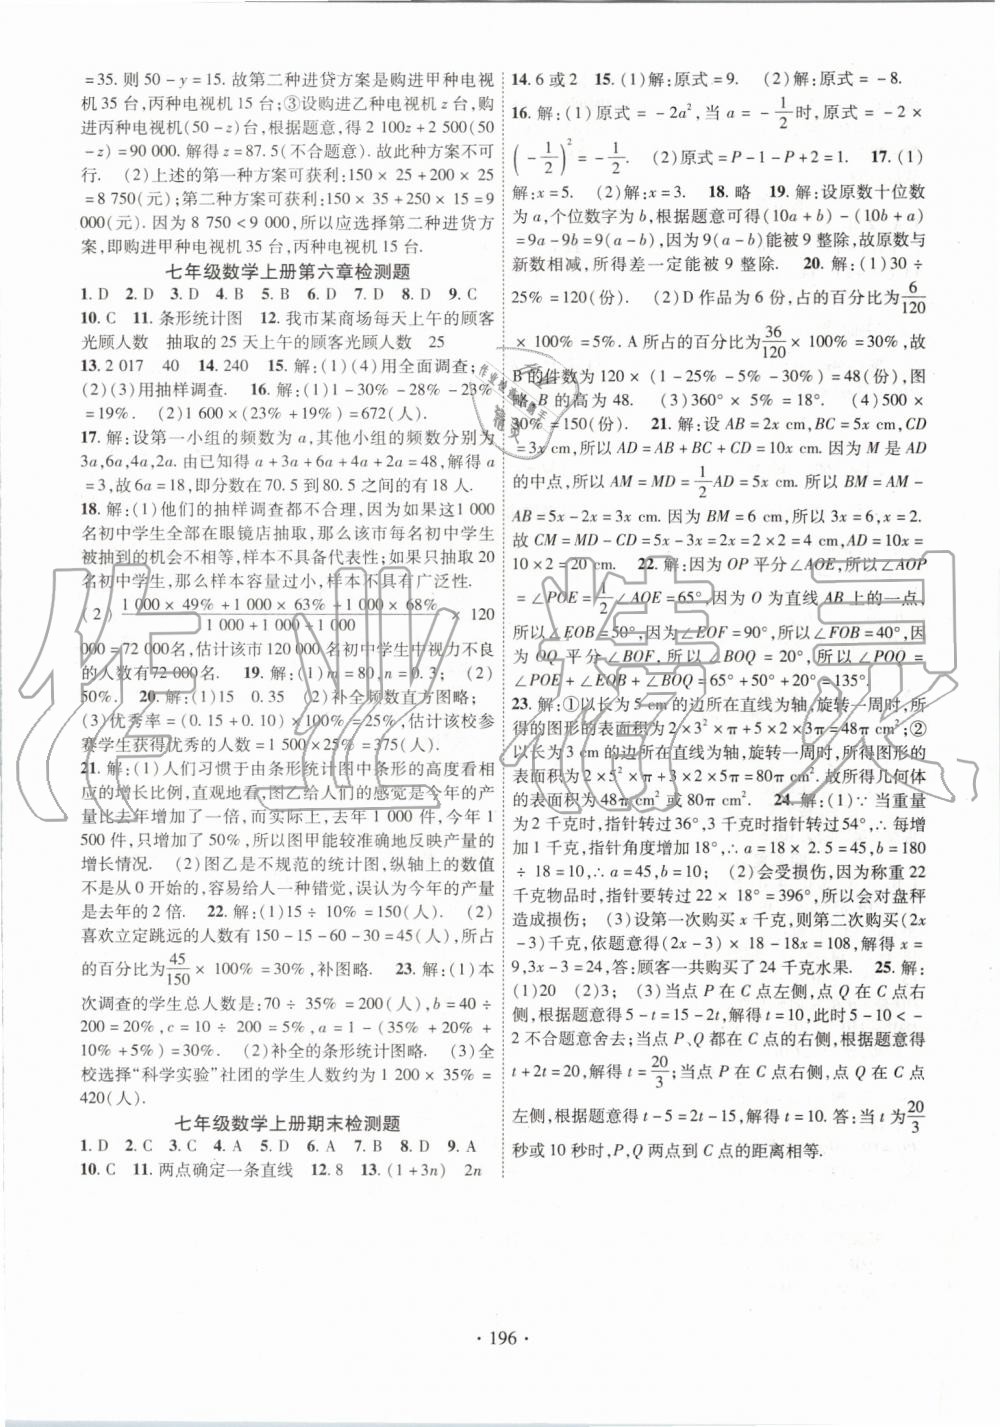 =35. 则 50-y=15. 故第二种进贷方案是购进甲种电视
机 35 台,丙种电视机 15 台;③设购进乙种电视机 z 台,购
进丙种电视机(50-z)台,根据题意,得 2 100z+2 500(50
-z)=90 000. 解得 z=87.5(不合题意). 故此种方案不可
行. (2)上述的第一种方案可获利:150×25+200×25
=8 750(元);第二种方案可获利:150×35+250×15=9
000(元). 因为 8 750<9 000,所以应选择第二种进货方
案,即购进甲种电视机 35 台,丙种电视机 15 台.
七年级数学上册第六章检测题
1. D 2. D 3. D 4. B 5. B 6. D 7. D 8. D 9. C
10. C 11. 条形统计图 12. 我市某商场每天上午的顾客
光顾人数 抽取的 25 天上午的顾客光顾人数 25
13. 2 017 40 14. 240 15. 解:(1)(4)用全面调查;
(2)(3)用抽样调查. 16. 解:(1)1-30%-28%-23%
=19%. (2)1 600×(23%+19%)=672(人).
17. 解:设第一小组的频数为 a,其他小组的频数分别为
3a,6a,4a,2a. 由已知得 a+3a+6a+4a+2a=48,解得 a
=3,故 6a=18,即分数在 70.5 到 80.5 之间的有 18 人.
18. 解:(1)他们的抽样调查都不合理,因为如果这 1 000
名初中学生全部在眼镜店抽取,那么该市每名初中学生
被抽到的机会不相等,样本不具备代表性;如果只抽取 20
名初中学生,那么样本容量过小,样本不具有广泛性.
(2) (1 000×49%+1 000×63%+1 000×68%)/(1 000+1 000+1 000) × 120
000=72 000(名),估计该市 120 000 名初中学生中视力不良
的人数有 72 000 名. 19. 解:(1)m=80,n=0.3; (2)
50%. 20. 解:(1)15 0.35 (2)补全频数直方图略;
(3)优秀率=(0.15+0.10)×100%=25%,估计该校参
赛学生获得优秀的人数=1 500×25%=375(人).
21. 解:(1)人们习惯于由条形统计图中条形的高度看相
应的增长比例,直观地看,图乙给人们的感觉是今年的产
量比去年增加了一倍,而实际上,去年 1 000 件,今年 1
500 件,只增加了 50%,所以图甲能较准确地反映产量的
增长情况. (2)图乙是不规范的统计图,纵轴上的数值
不是从 0 开始的,容易给人一种错觉,误认为今年的产量
是去年的 2 倍. 22. 解:(1)15÷10%=150(人). (2)
喜欢立定跳远的人数有 150-15-60-30=45(人),所占
的百分比为 45/150 × 100% =30%,补图略. 23. 解:(1)本
次调查的学生总人数是:70÷35%=200(人),b=40÷
÷200=20%,c=10÷200=5%,a=1-(35%+20%+
10%+5%)=30%. (2)补全的条形统计图略. (3)全
校选择“科学实验”社团的学生人数约为 1 200×35%=
420(人).
七年级数学上册期末检测题
1. D 2. C 3. C 4. A 5. A 6. D 7. B 8. D 9. A
10. C 11. 两点确定一条直线 12. 8 13. (1+3n) 2n
14. 6 或 2 15. (1)解:原式=9. (2)解:原式=-8.
16. 解:(1)原式=-2a²,当 a=-1/2时,原式=-2×
(-1/2)²=-1/2. (2)原式=P-1-P+2=1. 17. (1)
解:x=5. (2)解:x=3. 18. 略 19. 解:设原数十位数
为 a,个位数字为 b,根据题意可得(10a+b)-(10b+a)
=9a-9b=9(a-b). 因为 9(a-b)能被 9 整除,故原数与
新数相减,所得差一定能被 9 整除. 20. 解:(1)30÷
25%=120(份). (2)D 作品为 6 份,占的百分比为 6/120
×100%=5%. A 所占的百分比为 36/120×100%=30%,故
B 的件数为 120×(1-25%-5%-30%)=48(份),图
略,B 的高为 48. (3)360°×5%=18°. (4)500×
30%=150(份). 21. 解:设 AB=2x cm,BC=5x cm,CD
=3x cm,所以 AD=AB+BC+CD=10x cm. 因为 M 是 AD
的中点,所以 AM=MD=1/2AD=5x cm. 所以 BM=AM-
AB=5x-2x=3x cm. 因为 BM=6 cm,所以 3x=6,x=2.
故 CM=MD-CD=5x-3x=2x=2×2=4 cm,AD=10x=
10×2=20 cm. 22. 解:因为 OP 平分∠AOE,所以∠AOP
=∠POE=1/2∠AOE=65°,因为 O 为直线 AB 上的一点,
所以∠EOB=50°,因为∠EOF=90°,所以∠FOB=40°,因
为 OQ 平分∠BOF. 所以∠BOQ=20°,所以∠POQ=
∠POE+∠EOB+∠BOQ=65°+50°+20°=135°.
23. 解:①以长为 5 cm 的边所在直线为轴,旋转一周时,所
得的图形的表面积为 2×3²×π+5×2×3π=48π cm²;②
以长为 3 cm 的边所在直线为轴,旋转一周时,所得图形的
表面积为 2×5²×π+3×2×5π=80π cm². 故所得几何体
的表面积为 48π cm² 或 80π cm². 24. 解:(1)∵当重量
为 2 千克时,指针转过 36°,3 千克时指针转过 54°,∴每增
加 1 千克,指针角度增加 18°,∴a=18×2.5=45,b=180
÷18=10,∴a=45,b=10; (2)会受损伤,因为称重 22
千克物品时,指针要转过 22×18°=396°,所以会对盘秤
造成损伤; (3)设第一次购买 x 千克,则第二次购买(2x
-3)千克,依题意得(2x-3)×18-18x=108,解得 x=
9,39-3... 24 千克水果. 25. 解:
(1)20 (2)3; (3)当点 P 在 C 点左侧,点 Q 在 C 点右
侧,根据题意得 5-t=15-2t,解得 t=10,此时 5-10<-
2 不合题意舍去;当点 P、Q 都在 C 点的右侧,根据题意得
t+2t=20,解得 t=20/3;当点 P 在 C 点右侧,点 Q 在 C 点
左侧,根据题意得 t-5=2t-15,解得 t=10. 答:当 t 为20/3
秒或 10 秒时,P,Q 两点到 C 点的距离相等.
·196·
作业精灵